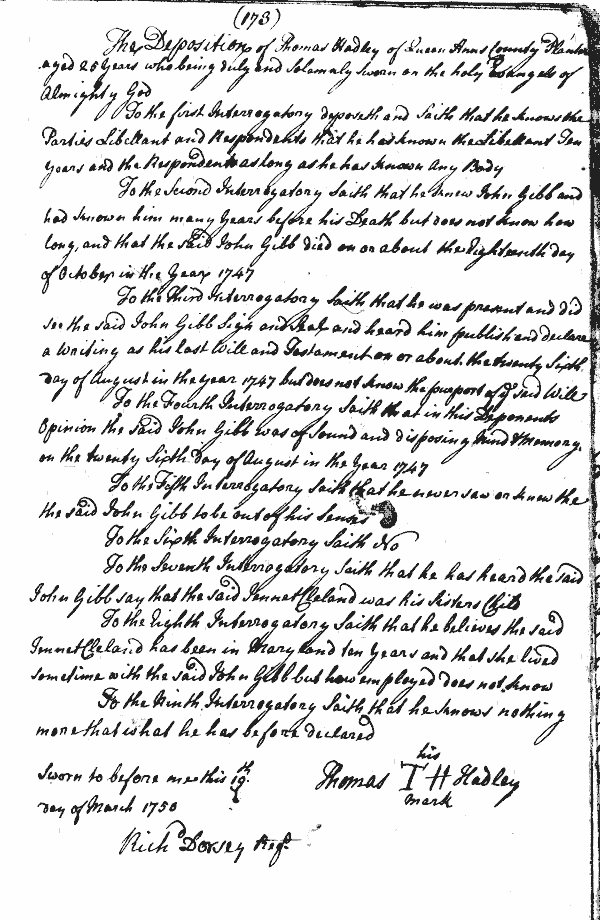 (173)
The Deposition of Thomas Hadley of Queen Anns County Planter
aged 25 Years who being duly and Solemnly Sworn on the holy Evangels of
Almighty God
To the first Interrogatory deposeth and Saith that he knows the
Parties Libellant and Respondents that he has known the Libellant Ten
Years and the Respondents as long as he has known Any Body
To the Second Interrogatory Saith that he knew John Gibb and
had known him many Years before his Death but does not know how
long, and that the said John Gibb died on or about the Eighteenth day
of October in the Year 1747
To the Third Interrogatory Saith that he was present and did
see the said John Gibb Sign and Seal and heard him publish and declare
a Writing as his last Will and Testament on or about the twenty Sixth
day of August in the year 1747 but does not know the purport of ye said Will
To the Fourth Interrogatory Saith that in this Deponents
Opinion the said John Gibb was of Sound and disposing Mind & Memory
on the twenty Sixth day of August in the Year 1747
To the Fifth Interrogatory Saith that he never saw or knew the
the said John Gibb to be out of his Senses
To the Sixth Interrogatory Saith No
To the Seventh Interrogatory Saith that he has heard the said
John Gibb say that the said Jennet Cleland was his Sisters Child
To the Eighth Interrogatory Saith that he believes the said
Jennet Cleland has been in Maryland ten Years and that she lived
sometime with the said John Gibb but how employed does not know
To the Ninth Interrogatory Saith that he knows nothing
more that what he has before declared
his
Sworn to before me this 19th Thomas T H Hadley
day of March 1750 mark
Richd Dorsey Regr